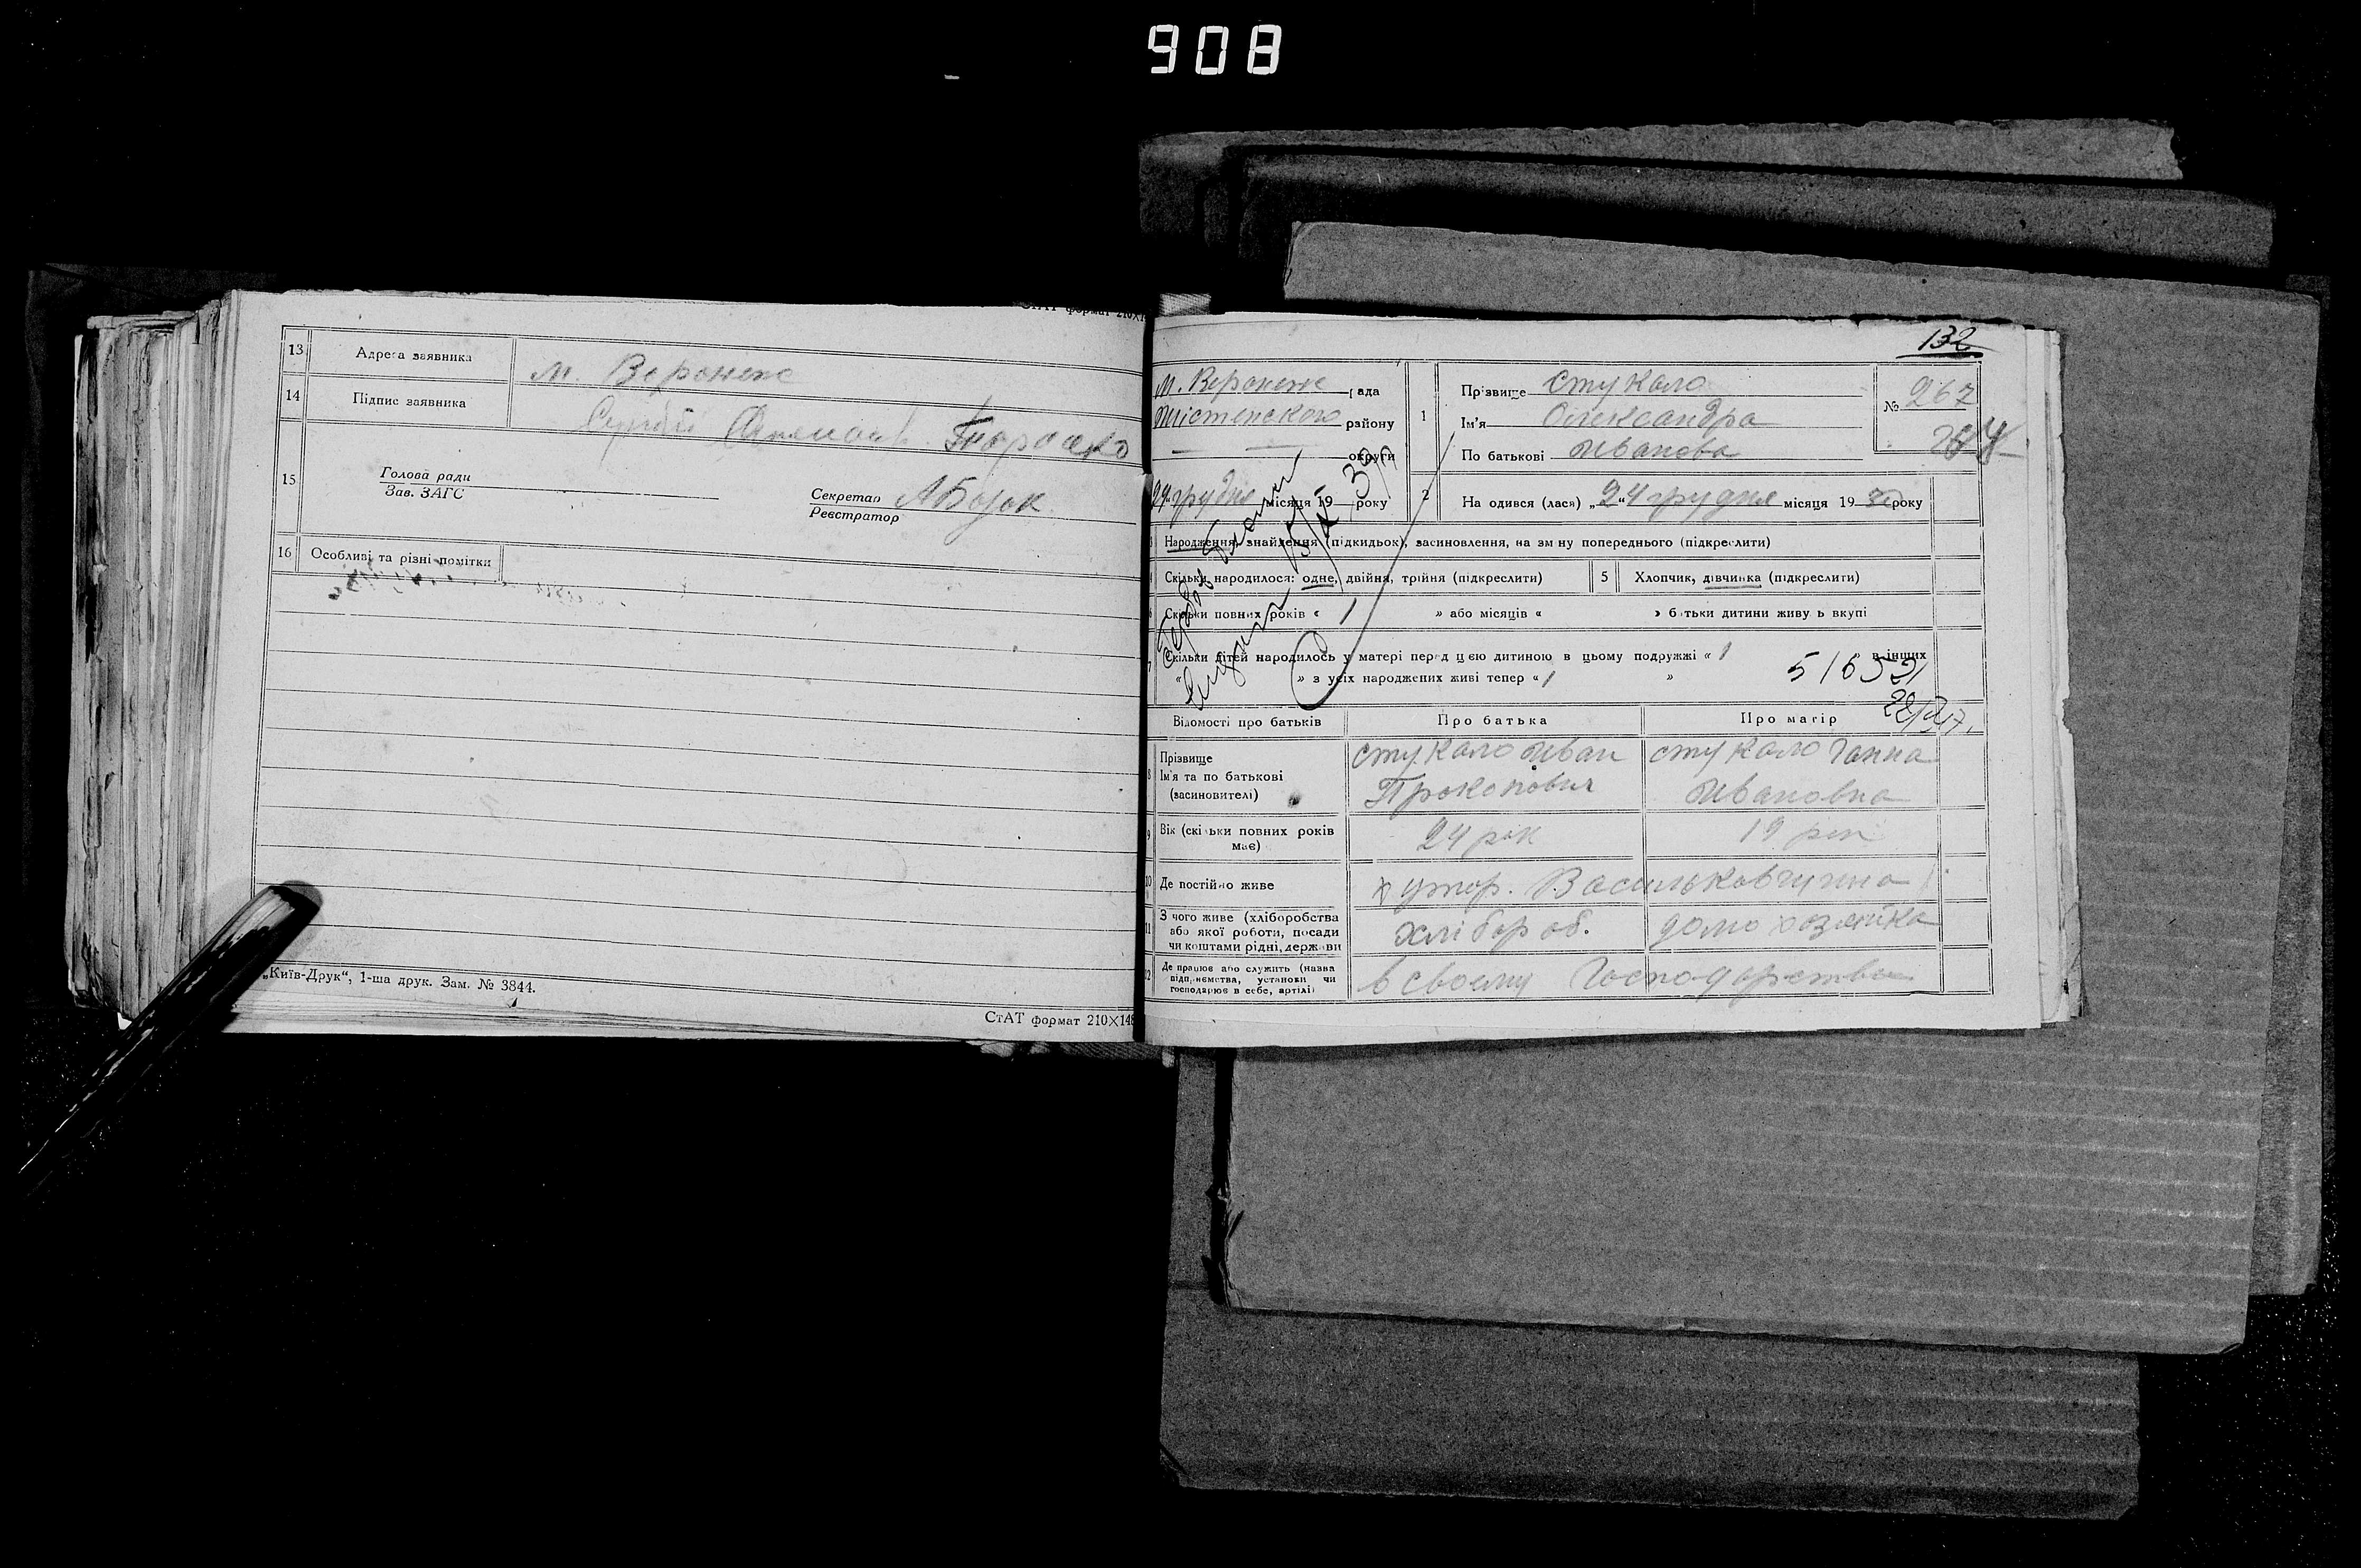 908
СтАТ формат 210×1
13 Адреса заявника м. Вороніж
14 Підпис заявника
15 Голова ради
Зав. ЗАГС
Секретар АБожок
Реєстратор
16 Особливі та різні помітки
„Київ-Друк“, 1-ша друк. Зам. № 3844.
СтАТ формат 210×148
132
М. Воронеже рада
району
округи
24 грудня місяця 19 року
1 Прізвище Стукало
Ім'я Олександра
По батькові Иванова
№ 267
264
2 На одився (лася) „24 грудня місяця 19 30 року
Народження, знайдення (підкидьок), засиновлення, на зм ну попереднього (підкреслити)
Скільки народилося: одне, двійня, трійня (підкреслити) 5 Хлопчик, дівчинка (підкреслити)
Скільки повних років « 1 » або місяців « » батьки дитини живу ь вкупі
Скільки дітей народилось у матері перед цею дитиною в цьому подружжі « 1 в інших
« » з усіх народжених живі тепер « 1 »
51652
Відомості про батьків Про батька Про матір
Прізвище
Ім'я та по батькові
(засиновителі)
Стукало Иван
Прокопович
Стукало Ганна
Ивановна
9 Вік (скільки повних років має) 24 рік 19 рік
10 Де постійно живе хутор. Васильковчина
11 З чого живе (хліборобства
або якої роботи, посади
чи коштами рідні, держави
хлібороб. домохозяйка
12 Де працює або служить (назва
підприємства, установи чи
господарює в себе, артілі)
в своему Господарстви